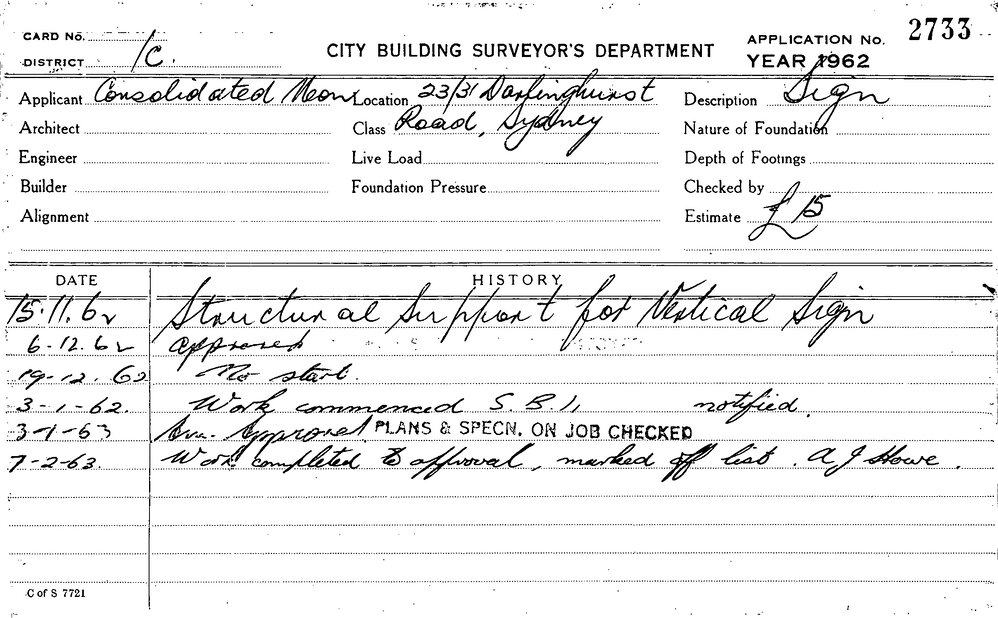 CARD No.
DISTRICT 1C.
CITY BUILDING SURVEYOR'S DEPARTMENT
APPLICATION No. 2733
YEAR 1962
Applicant Consolidated Neon Location 23/31 Darlinghurst Description Sign
Architect Class Road, Sydney Nature of Foundation
Engineer Live Load Depth of Footings
Builder Foundation Pressure Checked by
Alignment Estimate £15
DATE HISTORY
15.11.62 Structural Support for Vertical Sign
6-12.62 approved
19-12.62 No start.
3-1-62. Work commenced S.B.I, notified.
3-1-63 Approval PLANS & SPECN. ON JOB CHECKED
7-2-63. Work completed to approval, marked off list. A J Howe.
C of S 7721